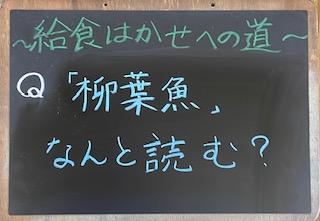 ～給食はかせへの道～
Q 「柳葉魚」
なんと読む？